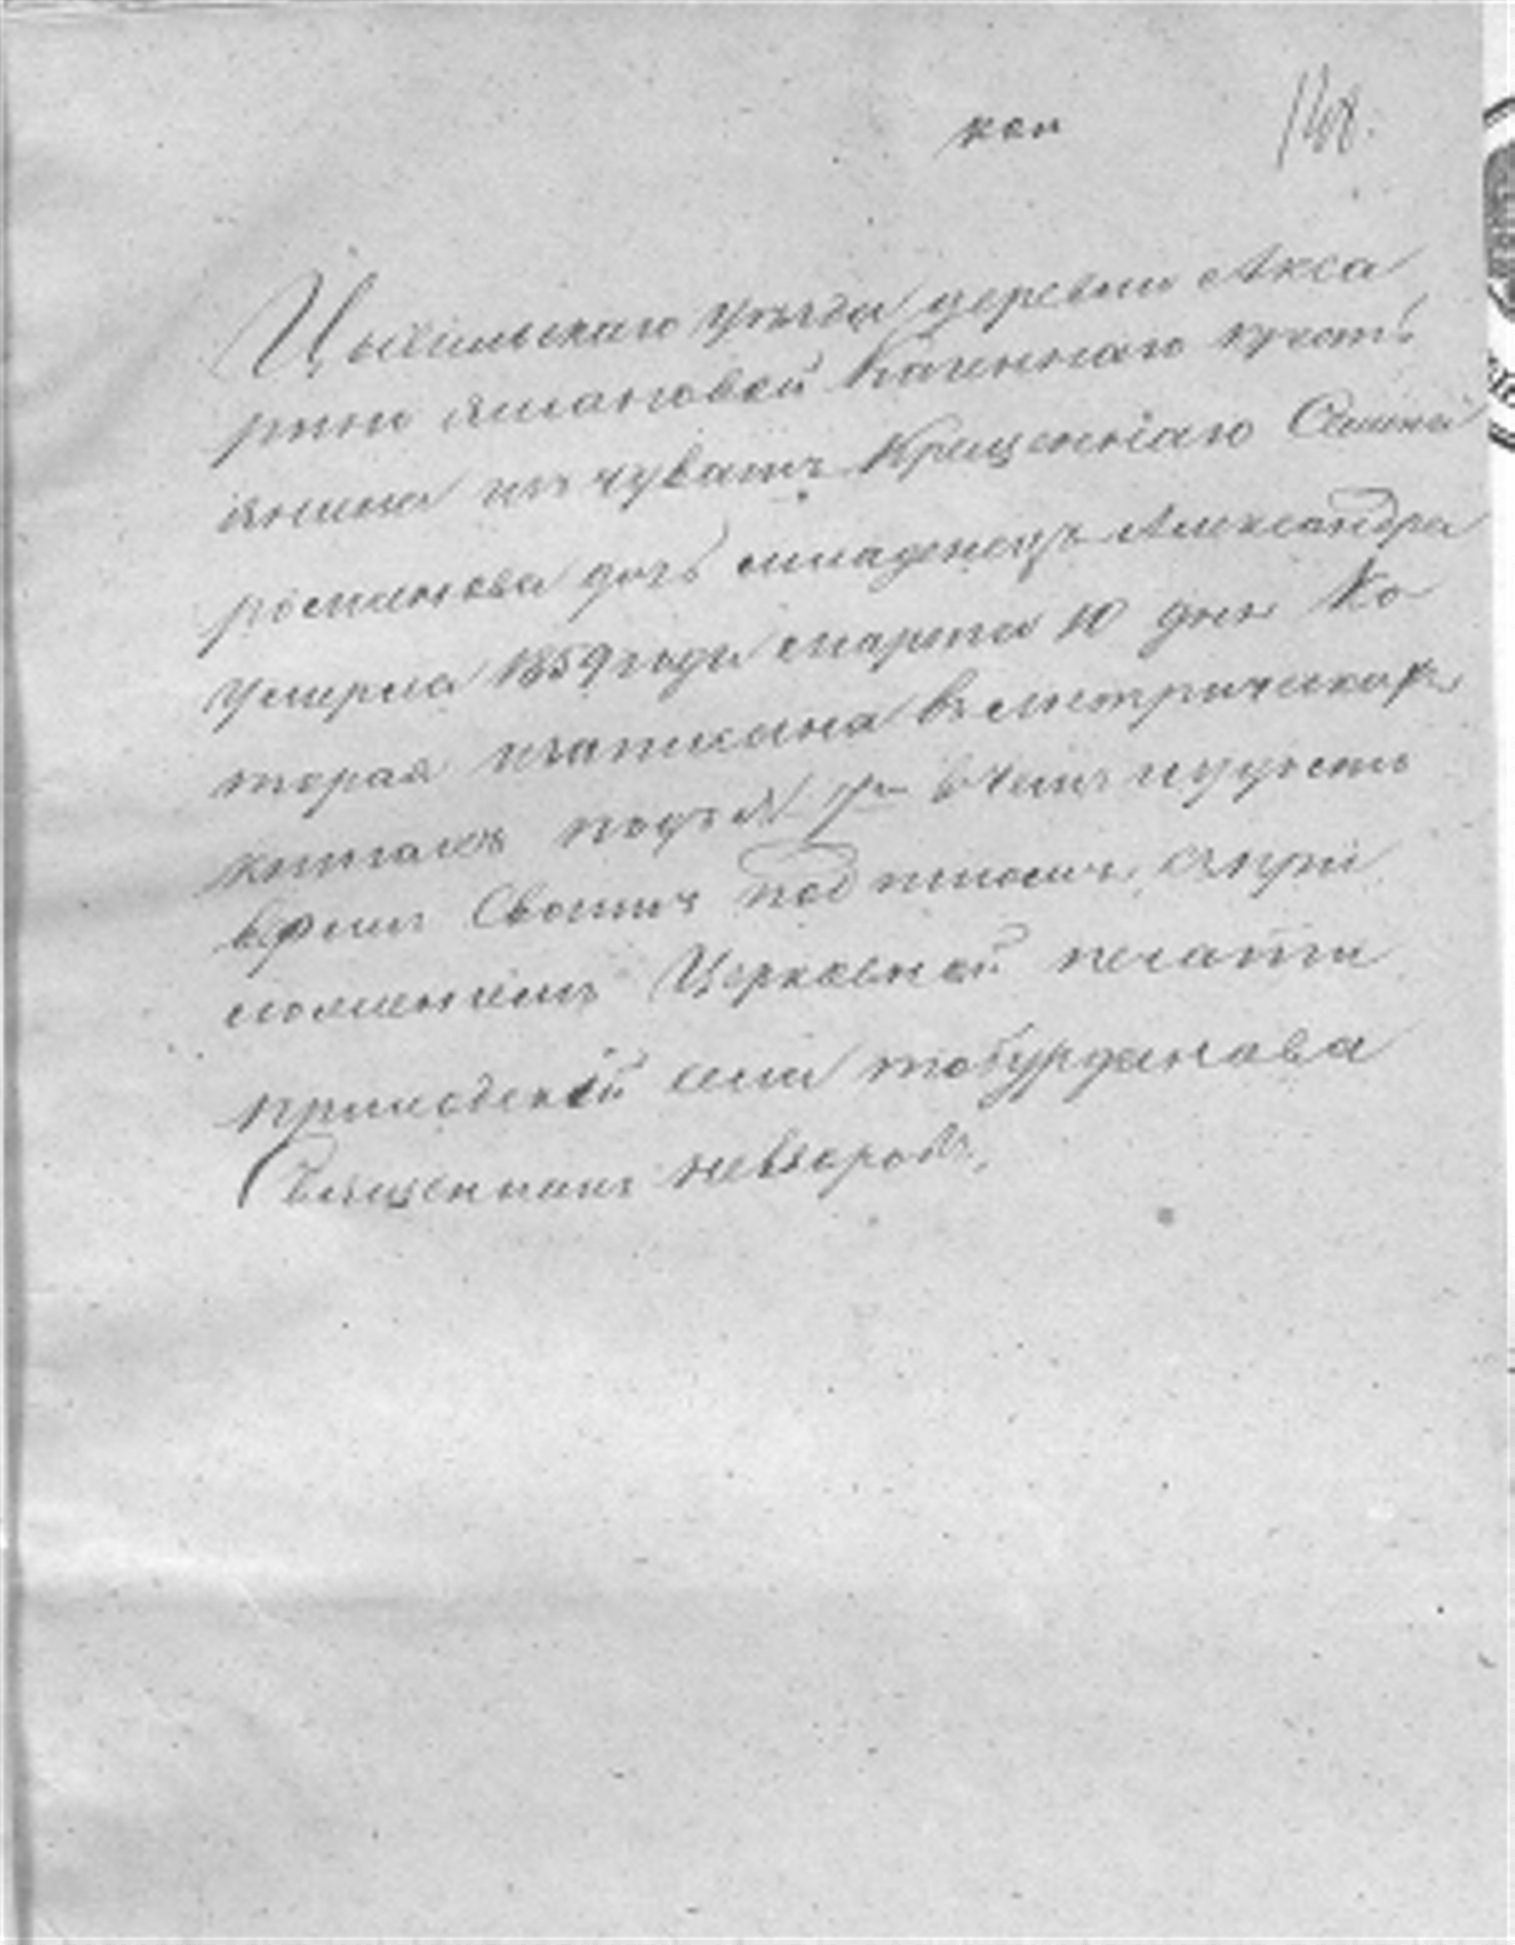 коп 148.
Цывильскаго уѣзда деревни Акса
рини Яшановой Казеннаго кресть
янина изъ чувашъ крещеннiаго Семена
романова дочь младенецъ Александра
умерла 1859 года марта 10 дня Ко
торая записана въ метрическихъ
книгахъ подъ № въ чемъ и удосто
вѣряя Своимъ подписомъ съ при
ложенiемъ Церковной печати
приходской села тобурданова
Священникъ невзоровъ,